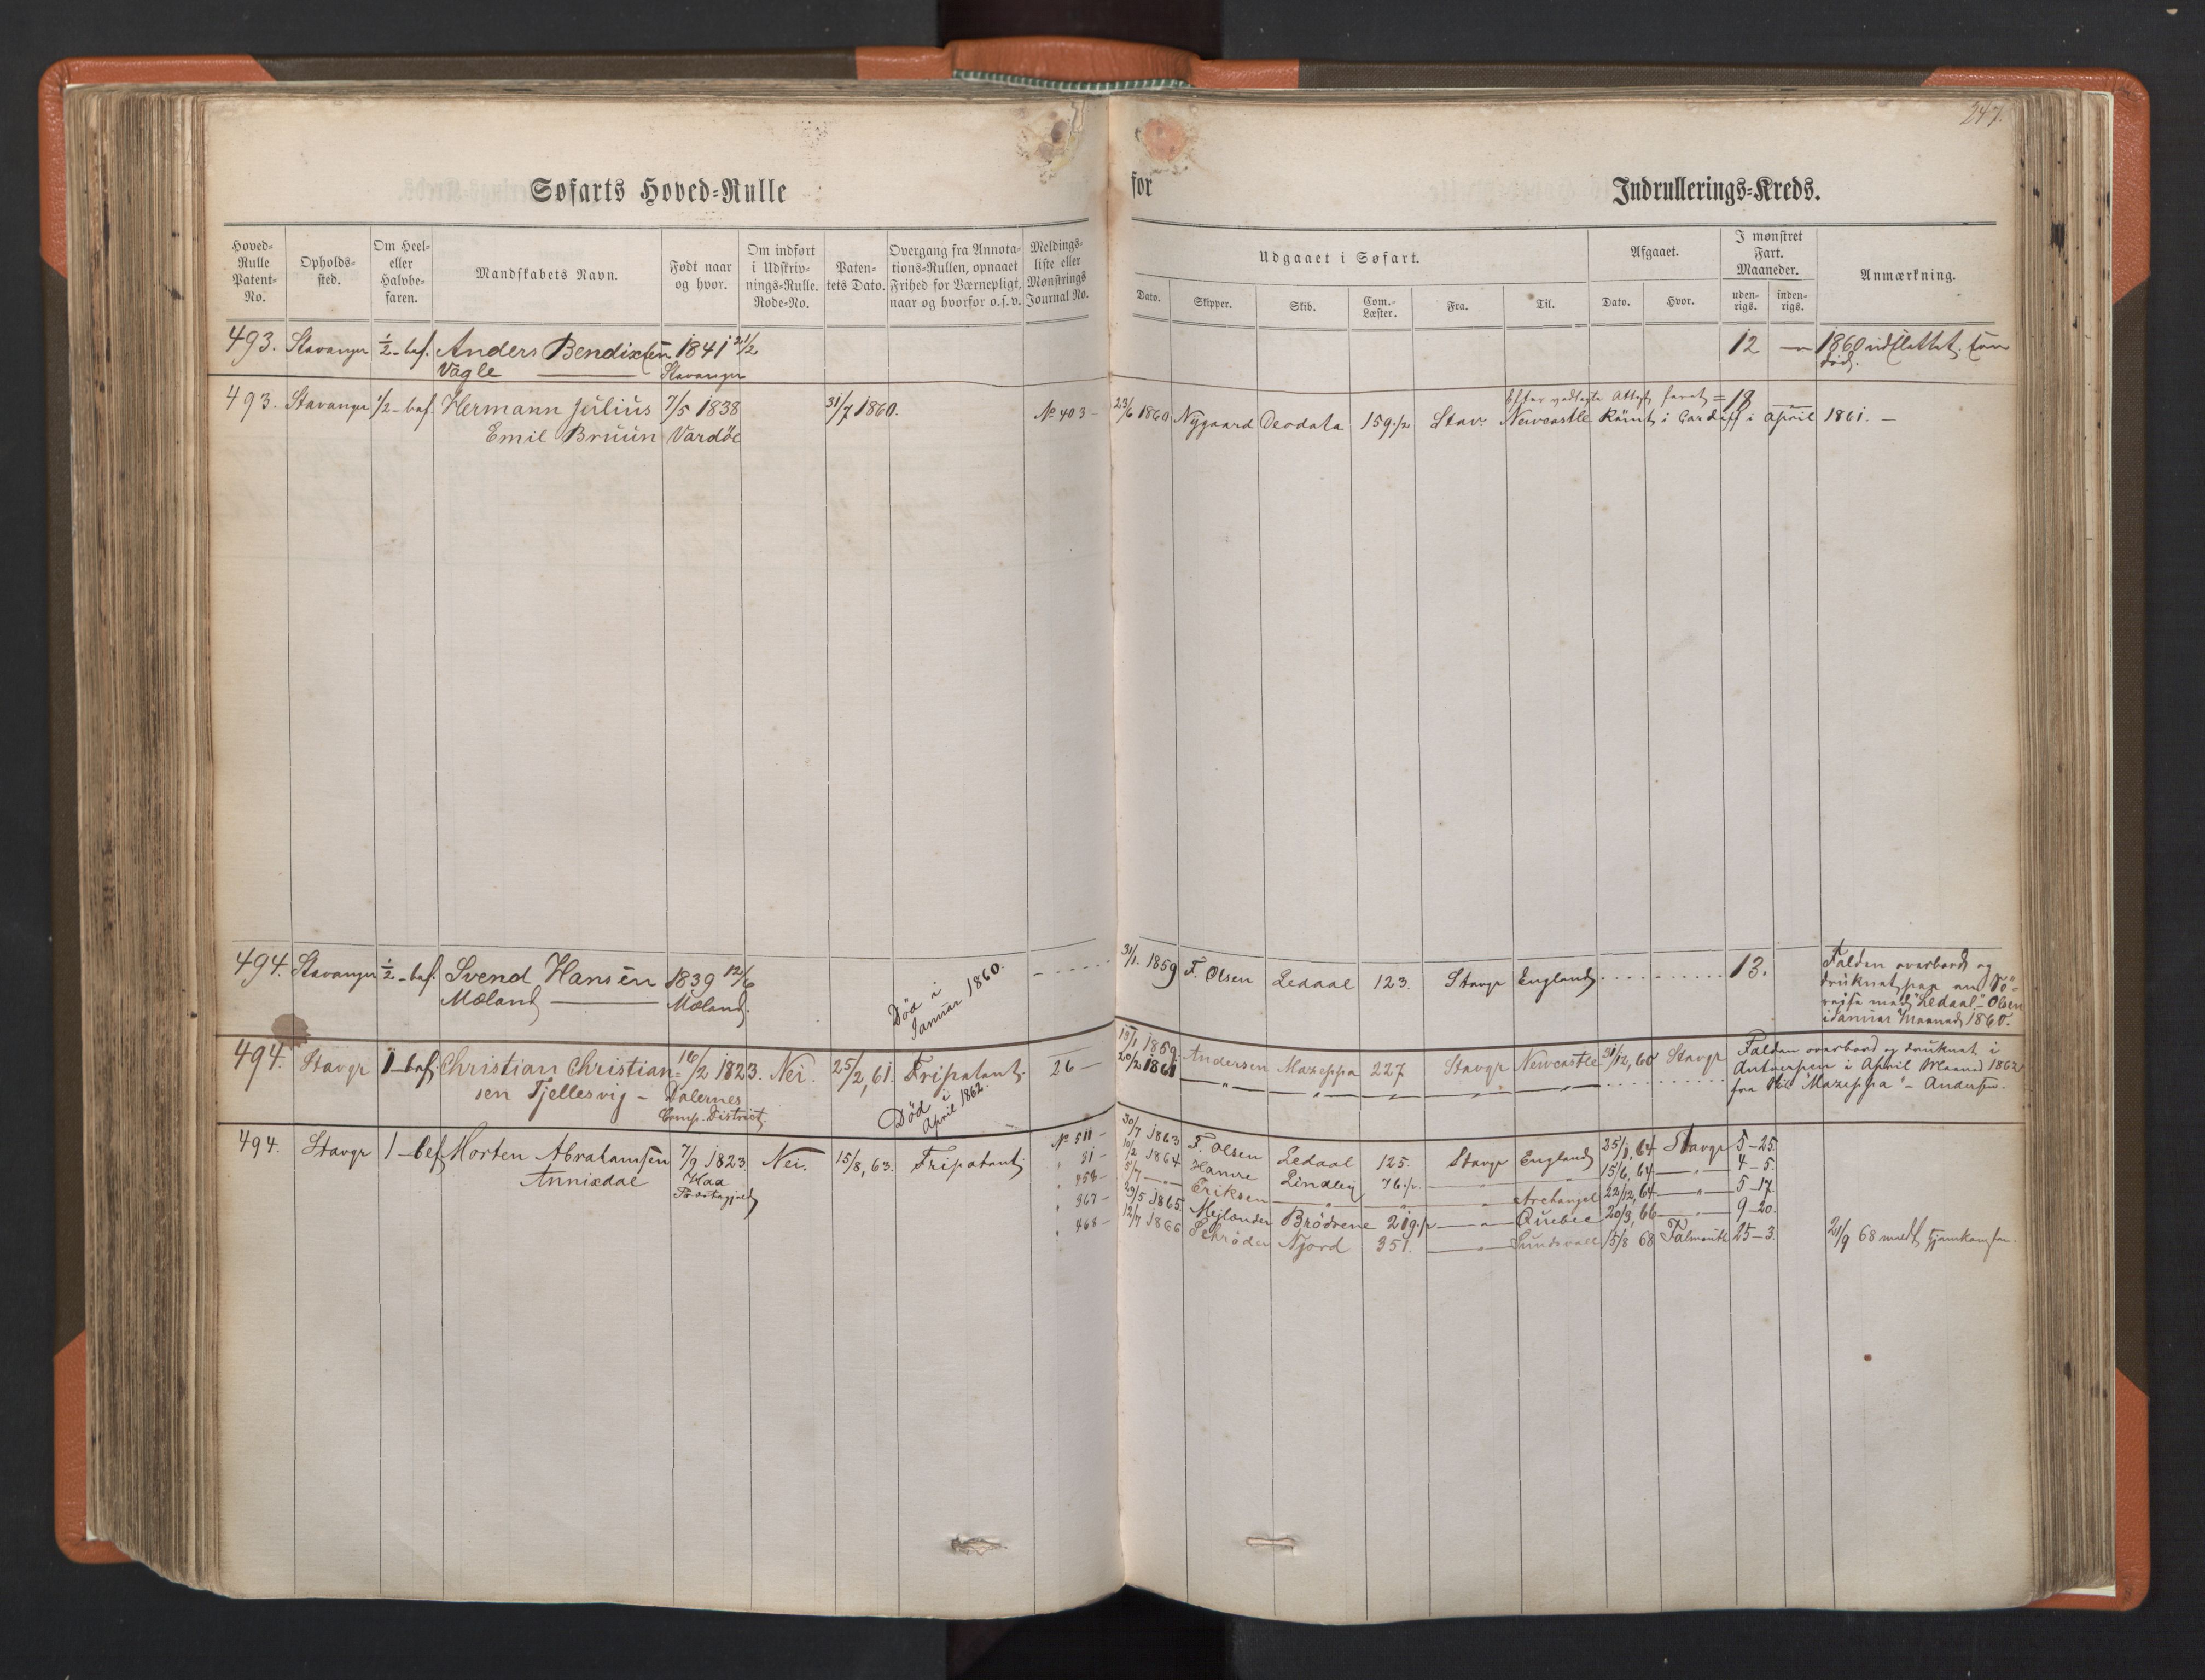 247.
Søfarts Hoved-Rulle for Indrullerings-Kreds.
Hoved-Rulle Patent-No. Opholds-sted. Om Heel- eller Halvbe-faren. Mandskabets Navn. Født naar og hvor. Om indført i Udskriv-nings-Rulle. Rode-No. Paten-tets Dato. Overgang fra Annota-tions-Rullen, opnaaet Frihed for Værnepligt, naar og hvorfor o.s.v. Meldings-liste eller Mønstrings Journal No.
Udgaaet i Søfart. Afgaaet. I mønstret Fart. Maaneder. Anmærkning.
Dato. Skipper. Skib. Com.-Læster. Fra. Til. Dato. Hvor. uden-rigs. inden-rigs.
493. Stavanger ½-bef. Anders Bendixsen 1841 21/2 12 — 1860 udslettet
Vagle — Stavanger død.
493. Stavanger 1/2-bef. Hermann Julius 7/5 1838 31/7 1860. No 403 - 23/6 1860 Nygaard Deodata 159 1/2 Stav. Newcastle Rømt i Cardiff i April 1861. —
Emil Bruun Vardöe
Efter vedlagte Attest faret = 18 —
494. Stavanger ½-bef. Svend Hansen 1839 12/6 Død i Januar 1860. 31/1. 1859 F. Olsen Ledaal 123. Stavgr England 13.
Mæland — Mæland.
Falden overbord og
druknet paa en
reise med "Ledaal" - Olsen
i Januar Maaned 1860.
494. Stavgr 1-bef. Christian Christian- 16/2 1823. Nei. 25/2, 61. Fripatent. 26 — 19/1 1859. Andersen Mazeppa 227 Stavgr Newcastle 31/12, 60 Stavgr
sen Tjellesvig - Dalernes Comp. District. Død i April 1862. 20/2 1861 — " — " — " — "
Falden overbord og druknet i
Antwerpen i April Maaned 1862
fra Skib "Mazeppa" - Andersen.
494. Stavgr 1-bef Morten Abrahamsen 7/9 1823. Nei. 15/8, 63. Fripatent. No 511 - 30/7 1863 F. Olsen Ledaal 125. Stavgr England 25/1, 64 Stavgr 5-25.
Annixdal 31 - 10/2 1864 Hamre Lindley 76 1/2 — " — " 15/6, 64 — " — 4-5.
5/7 — " — Eriksen — " — " — " Archangel 22/12, 64 — " — 5-17.
367 - 29/5 1865. Mejlænder Brödrene 219 1/2 — " — Quebec 20/3, 66 — " — 9-20.
468 - 12/7 1866 Schrøder Njord 351. — " — Sundsvall 15/8 68 Falmouth 25-3. 21/9 68 meldt hjemkommen.